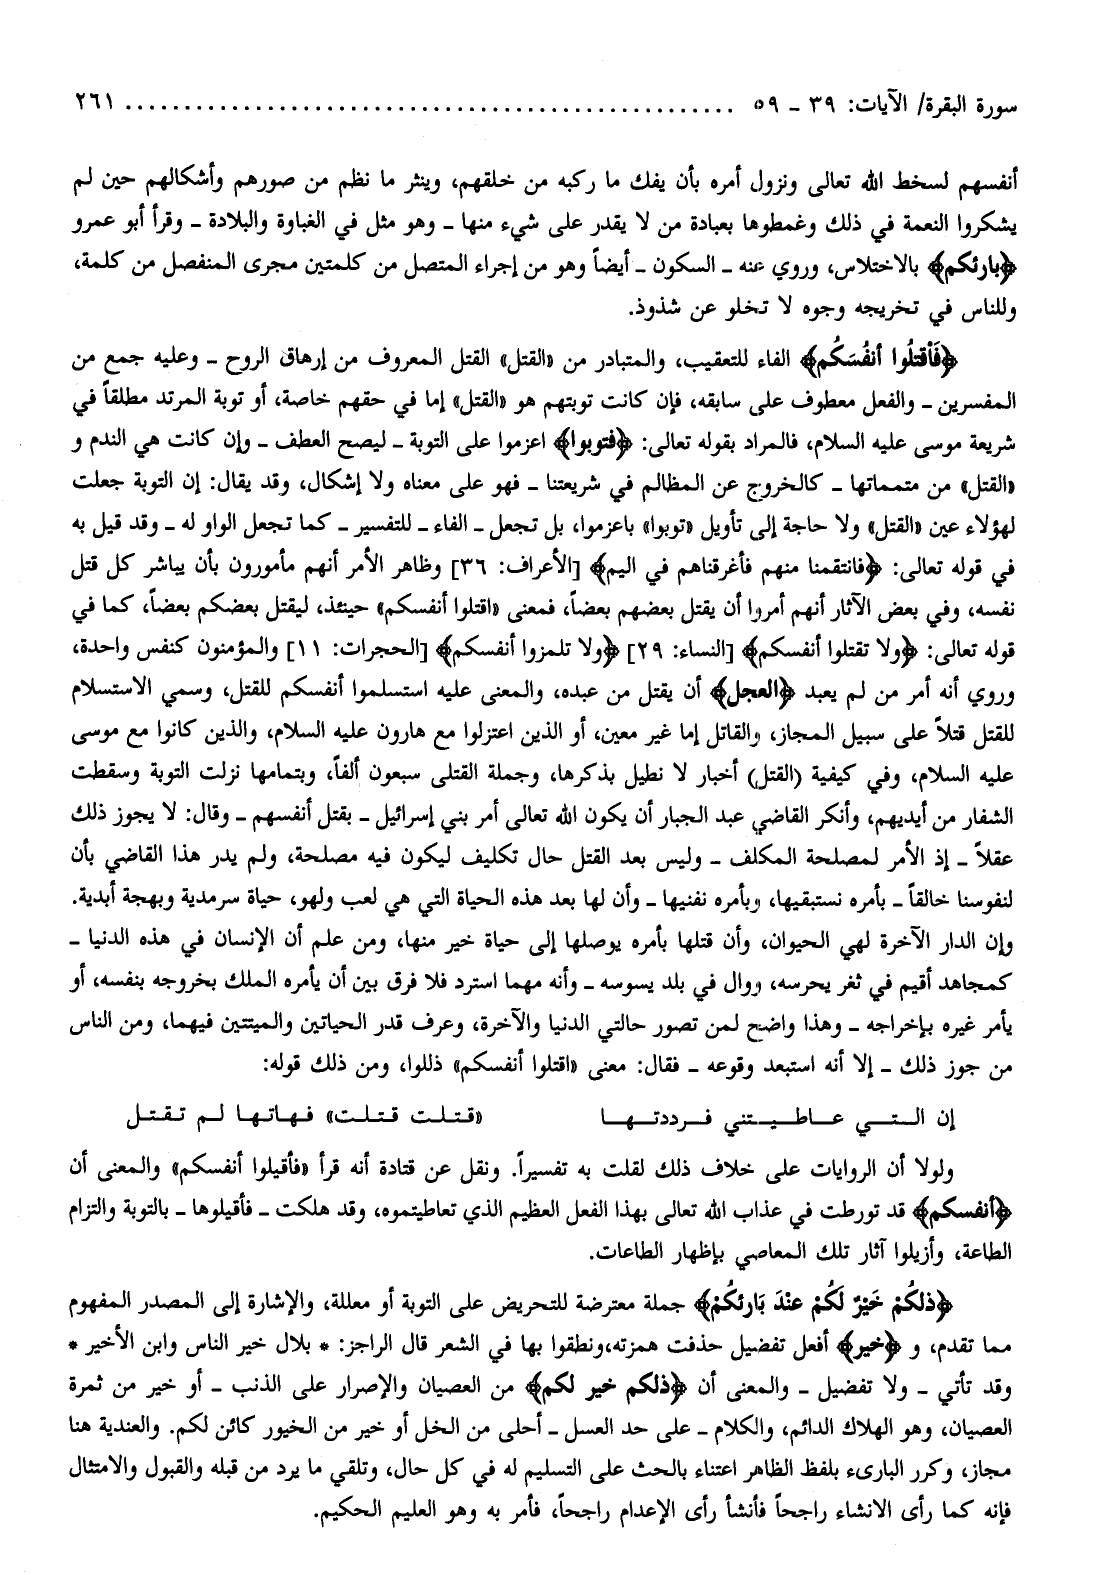 سورة البقرة/ الآيات: ٣٩ ـ ٥٩ ................................................... ٢٦١
أنفسهم لسخط الله تعالى ونزول أمره بأن يفك ما ركبه من خلقهم، وينثر ما نظم من صورهم وأشكالهم حين لم
يشكروا النعمة في ذلك وغمطوها بعبادة من لا يقدر على شيء منها ـ وهو مثل في الغباوة والبلادة ـ وقرأ أبو عمرو
﴿بارئكم﴾ بالاختلاس، وروي عنه ـ السكون ـ أيضاً وهو من إجراء المتصل من كلمتين مجرى المنفصل من كلمة،
وللناس في تخريجه وجوه لا تخلو عن شذوذ.
﴿فَاْقتلُوا أنفُسَكُم﴾ الفاء للتعقيب، والمتبادر من «القتل» القتل المعروف من إرهاق الروح ـ وعليه جمع من
المفسرين ـ والفعل معطوف على سابقه، فإن كانت توبتهم هو «القتل» إما في حقهم خاصة، أو توبة المرتد مطلقاً في
شريعة موسى عليه السلام، فالمراد بقوله تعالى: ﴿فتوبوا﴾ اعزموا على التوبة ـ ليصح العطف ـ وإن كانت هي الندم و
«القتل» من متمماتها ـ كالخروج عن المظالم في شريعتنا ـ فهو على معناه ولا إشكال، وقد يقال: إن التوبة جعلت
لهؤلاء عين «القتل» ولا حاجة إلى تأويل «توبوا» باعزموا، بل تجعل ـ الفاء ـ للتفسير ـ كما تجعل الواو له ـ وقد قيل به
في قوله تعالى: ﴿فانتقمنا منهم فأغرقناهم في اليم﴾ [الأعراف: ٣٦] وظاهر الأمر أنهم مأمورون بأن يباشر كل قتل
نفسه، وفي بعض الآثار أنهم أمروا أن يقتل بعضهم بعضاً، فمعنى «اقتلوا أنفسكم» حينئذ، ليقتل بعضكم بعضاً، كما في
قوله تعالى: ﴿ولا تقتلوا أنفسكم﴾ [النساء: ٢٩] ﴿ولا تلمزوا أنفسكم﴾ [الحجرات: ١١] والمؤمنون كنفس واحدة،
وروي أنه أمر من لم يعبد ﴿العجل﴾ أن يقتل من عبده، والمعنى عليه استسلموا أنفسكم للقتل، وسمي الاستسلام
للقتل قتلاً على سبيل المجاز، والقاتل إما غير معين، أو الذين اعتزلوا مع هارون عليه السلام، والذين كانوا مع موسى
عليه السلام، وفي كيفية (القتل) أخبار لا نطيل بذكرها، وجملة القتلى سبعون ألفاً، وبتمامها نزلت التوبة وسقطت
الشفار من أيديهم، وأنكر القاضي عبد الجبار أن يكون الله تعالى أمر بني إسرائيل ـ بقتل أنفسهم ـ وقال: لا يجوز ذلك
عقلاً ـ إذ الأمر لمصلحة المكلف ـ وليس بعد القتل حال تكليف ليكون فيه مصلحة، ولم يدر هذا القاضي بأن
لنفوسنا خالقاً ـ بأمره نستبقيها، وبأمره نفنيها ـ وأن لها بعد هذه الحياة التي هي لعب ولهو، حياة سرمدية وبهجة أبدية.
وإن الدار الآخرة لهي الحيوان، وأن قتلها بأمره يوصلها إلى حياة خير منها، ومن علم أن الإنسان في هذه الدنيا ـ
كمجاهد أقيم في ثغر يحرسه، ووال في بلد يسوسه ـ وأنه مهما استرد فلا فرق بين أن يأمره الملك بخروجه بنفسه، أو
يأمر غيره بإخراجه ـ وهذا واضح لمن تصور حالتي الدنيا والآخرة، وعرف قدر الحياتين والميتتين فيهما، ومن الناس
من جوز ذلك ـ إلا أنه استبعد وقوعه ـ فقال: معنى «اقتلوا أنفسكم» ذللوا، ومن ذلك قوله:
إن التي عاطيتني فرددتها «قتلت قتلت» فهاتها لم تقتل
ولولا أن الروايات على خلاف ذلك لقلت به تفسيراً. ونقل عن قتادة أنه قرأ «فأقيلوا أنفسكم» والمعنى أن
﴿أنفسكم﴾ قد تورطت في عذاب الله تعالى بهذا الفعل العظيم الذي تعاطيتموه، وقد هلكت ـ فأقيلوها ـ بالتوبة والتزام
الطاعة، وأزيلوا آثار تلك المعاصي بإظهار الطاعات.
﴿ذلكُمْ خَيْرٌ لَكُمْ عنْدَ بَارئكُمْ﴾ جملة معترضة للتحريض على التوبة أو معللة، والإشارة إلى المصدر المفهوم
مما تقدم، و ﴿خير﴾ أفعل تفضيل حذفت همزته،ونطقوا بها في الشعر قال الراجز: * بلال خير الناس وابن الأخير *
وقد تأتي ـ ولا تفضيل ـ والمعنى أن ﴿ذلكم خير لكم﴾ من العصيان والإصرار على الذنب ـ أو خير من ثمرة
العصيان، وهو الهلاك الدائم، والكلام ـ على حد العسل ـ أحلى من الخل أو خير من الخيور كائن لكم. والعندية هنا
مجاز، وكرر البارىء بلفظ الظاهر اعتناء بالحث على التسليم له في كل حال، وتلقي ما يرد من قبله والقبول والامتثال
فإنه كما رأى الانشاء راجحاً فأنشأ رأى الإعدام راجحاً، فأمر به وهو العليم الحكيم.